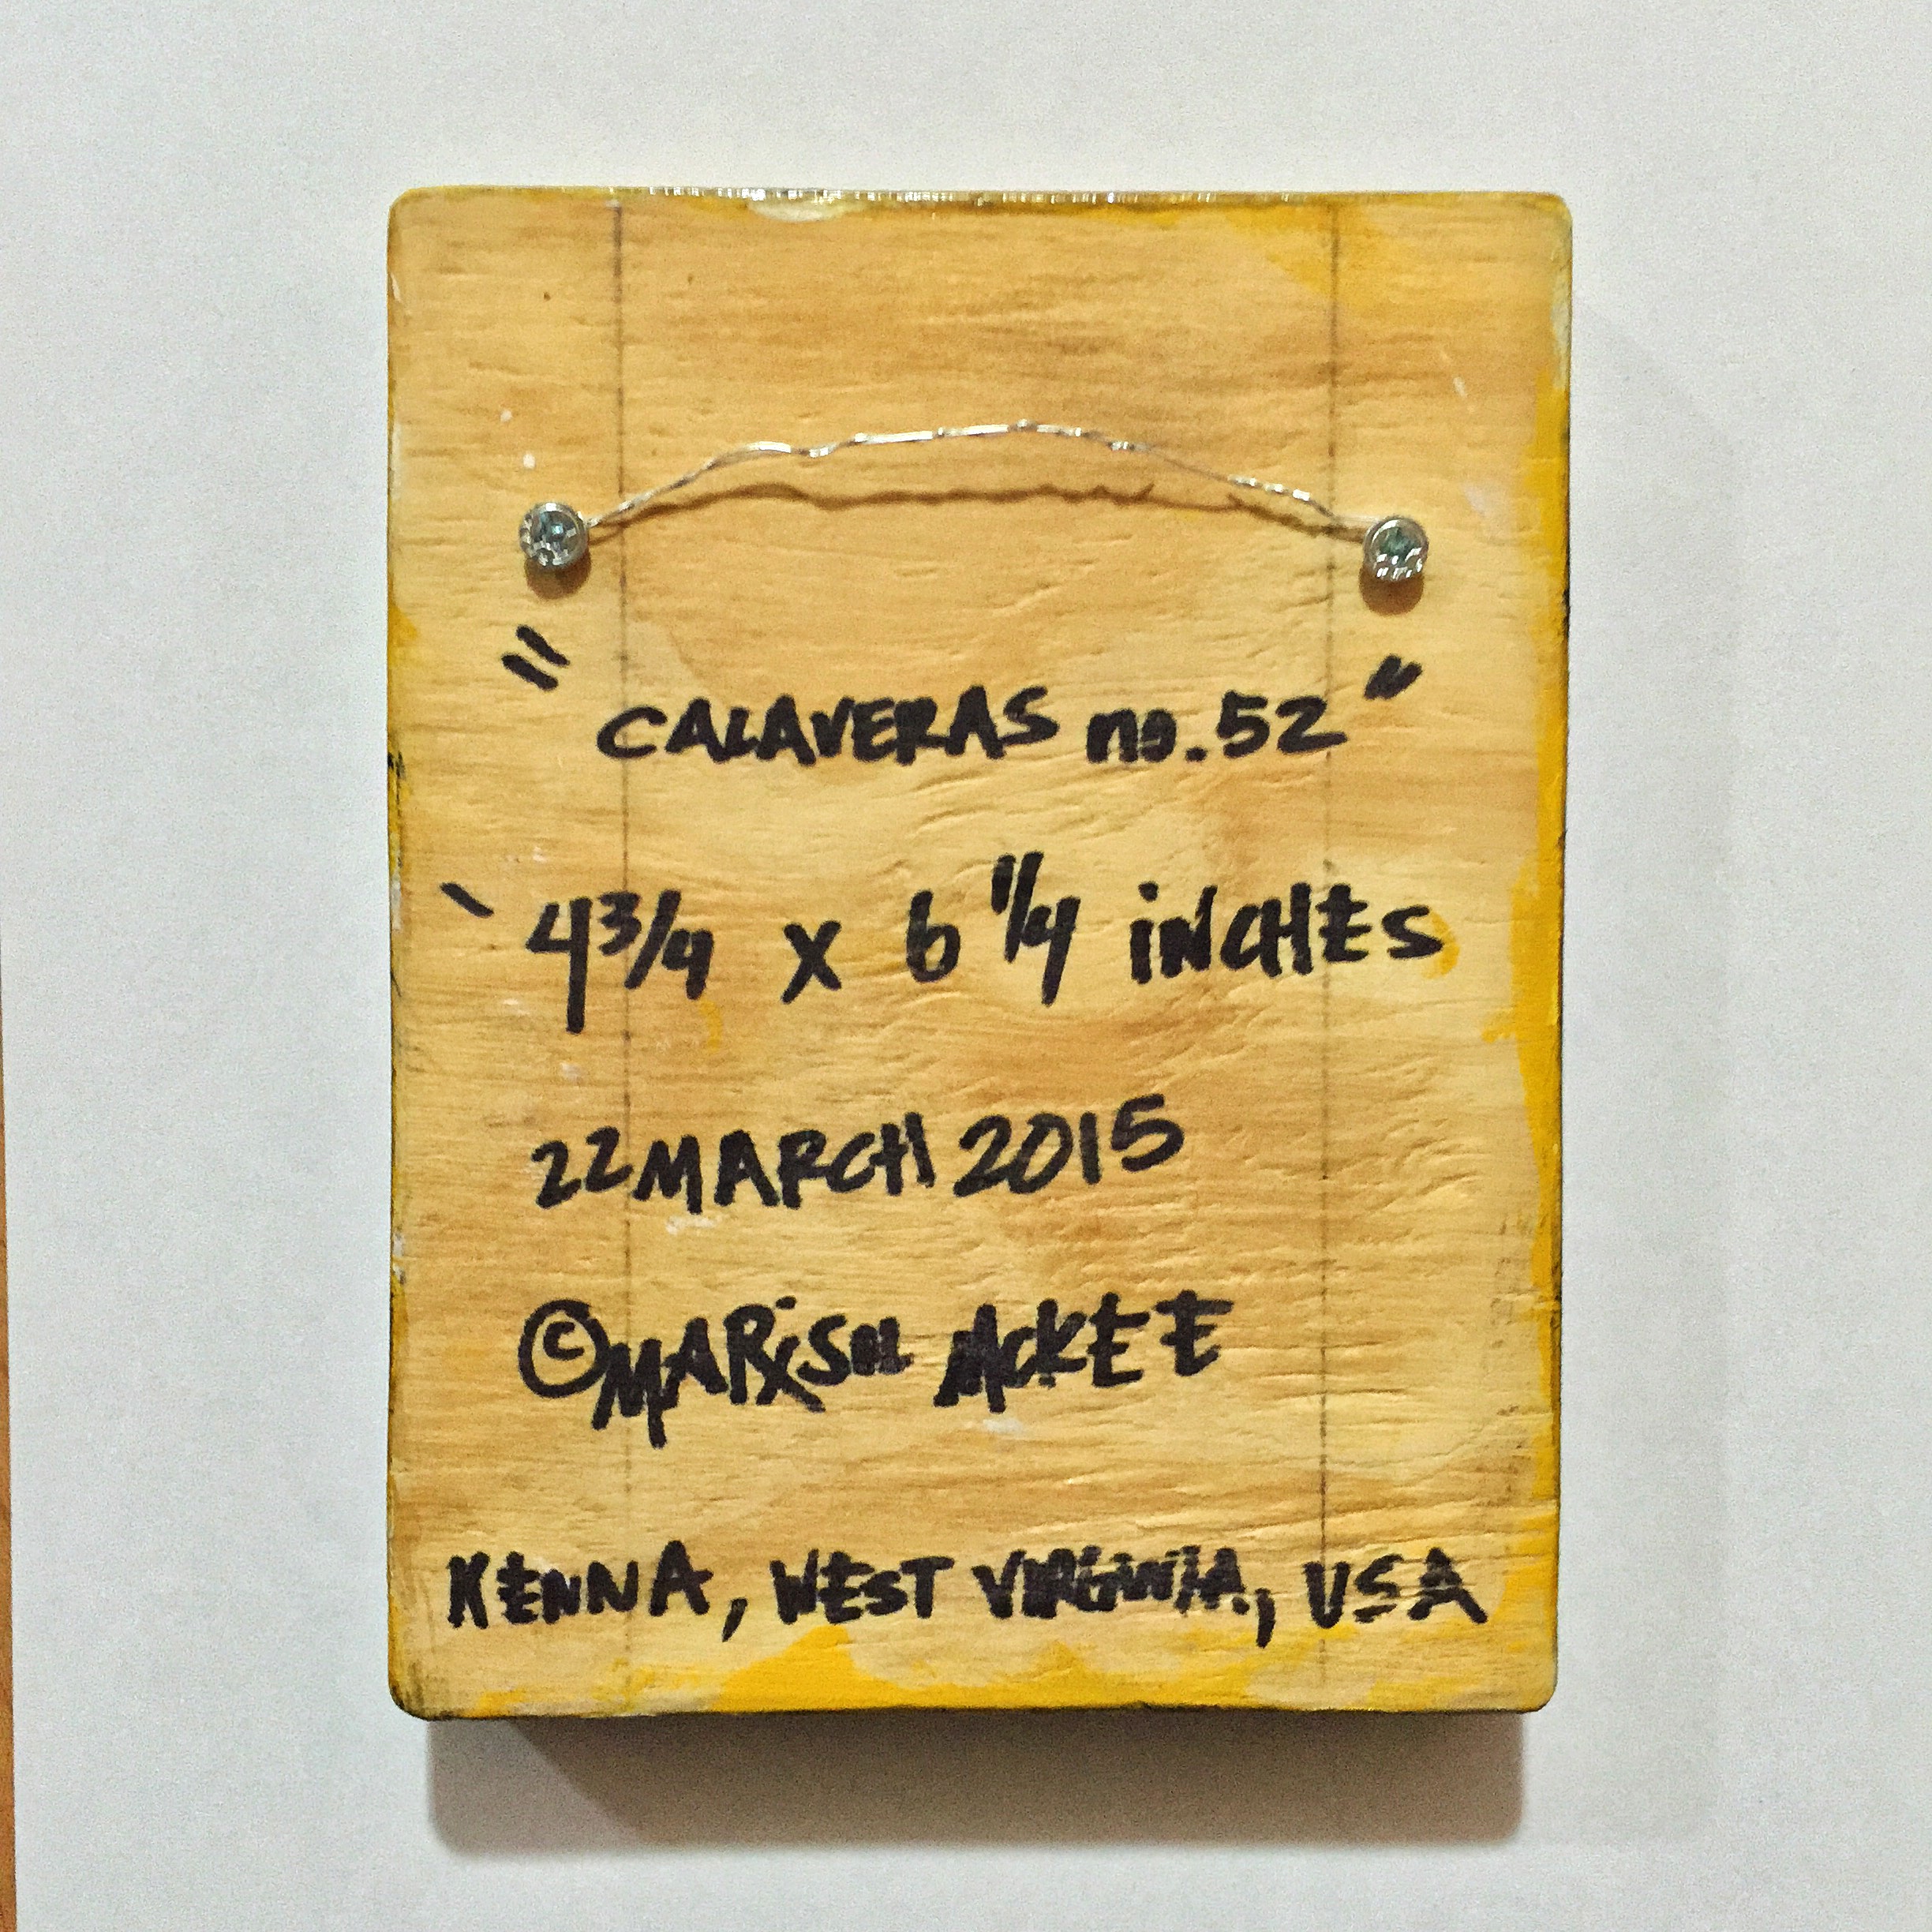 "CALAVERAS no. 52"
4 3/4 x 6 1/4 INCHES
22 MARCH 2015
© MARiSOL MCKEE
KENNA, WEST VIRGINIA, USA